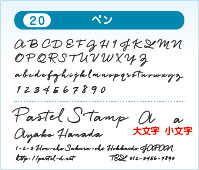 20 ペン
ABCDEFGHIJKLMN
OPQRSTUVWXYZ
abcdefghijklmnopqrstuvwxyz
1234567890
Pastel Stamp A a
大文字 小文字
Ayako Hanada
1-2-3 Hon-cho Sakura-cho Hokkaido JAPAN
http://pastel-d.net TEL 012-3456-7890